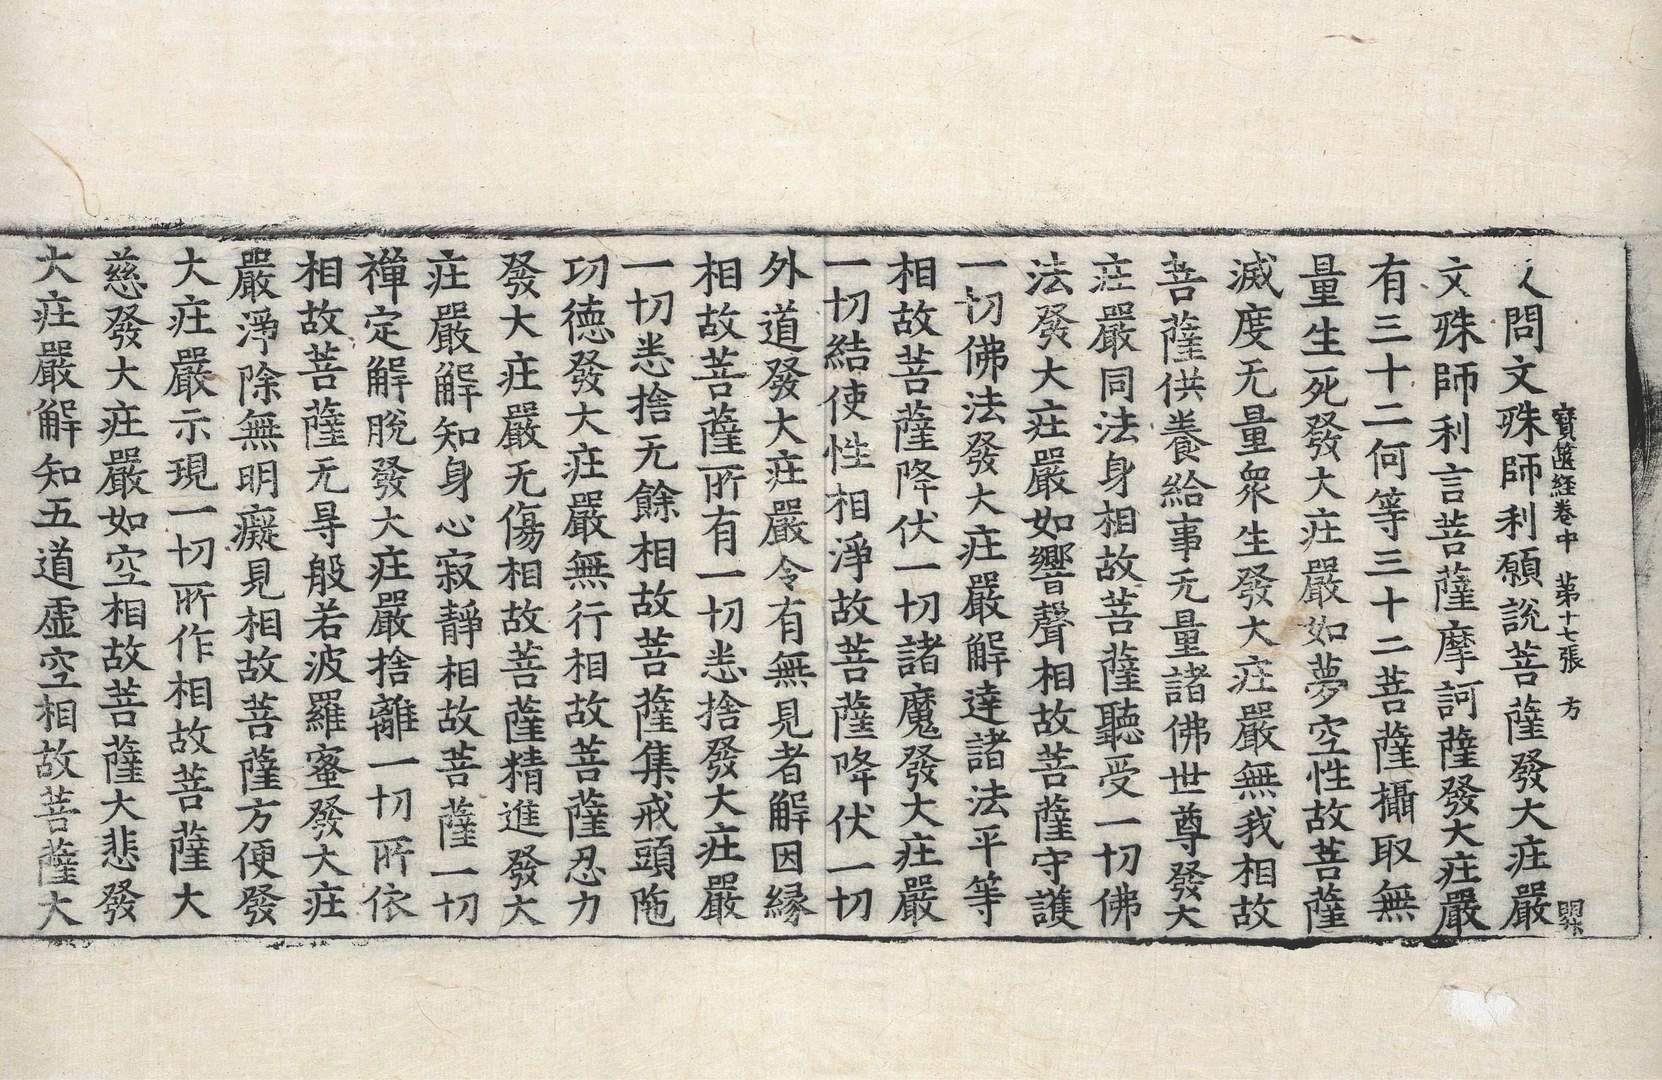 寶篋経卷中 第十七張 方
又問文殊師利願說菩薩發大庄嚴
文殊師利言菩薩摩訶薩發大庄嚴
有三十二何等三十二菩薩攝取無
量生死發大庄嚴如夢空性故菩薩
滅度无量衆生發大庄嚴無我相故
菩薩供養給事无量諸佛世尊發大
庄嚴同法身相故菩薩聽受一切佛
法發大庄嚴如響聲相故菩薩守護
一切佛法發大庄嚴解達諸法平等
相故菩薩降伏一切諸魔發大庄嚴
一切結使性相淨故菩薩降伏一切
外道發大庄嚴令有無見者解因縁
相故菩薩所有一切悉捨發大庄嚴
一切悉捨无餘相故菩薩集戒頭陁
功德發大庄嚴無行相故菩薩忍力
發大庄嚴无傷相故菩薩精進發大
庄嚴解知身心寂靜相故菩薩一切
禪定解脫發大庄嚴捨離一切所依
相故菩薩无㝵般若波羅蜜發大庄
嚴淨除無明癡見相故菩薩方便發
大庄嚴示現一切所作相故菩薩大
慈發大庄嚴如空相故菩薩大悲發
大庄嚴解知五道虛空相故菩薩大